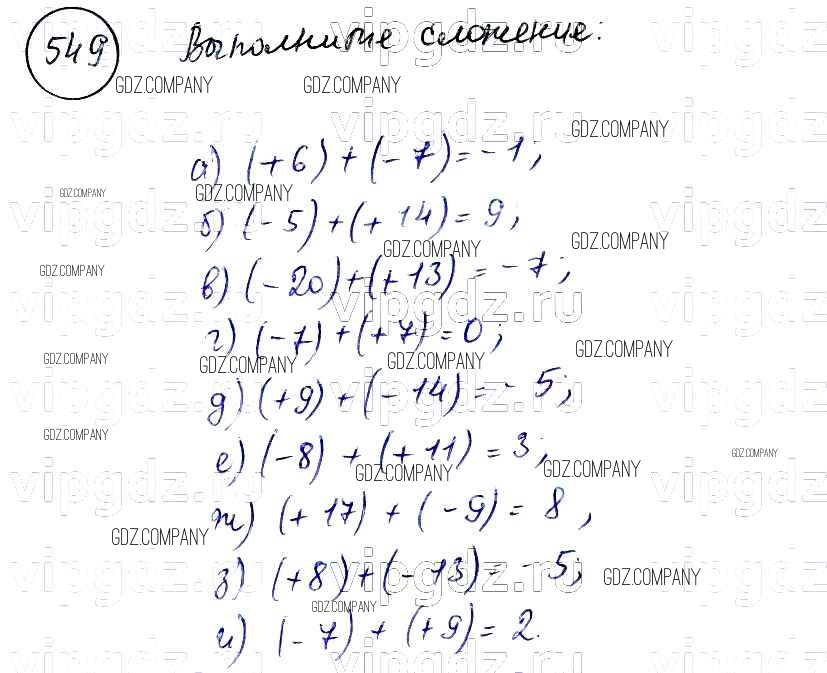 549 Выполните сложение:
GDZ.COMPANY GDZ.COMPANY
vipgdz.ru vipgdz.ru vipgdz.ru
GDZ.COMPANY
а) (+6) + (-7) = -1;
GDZ.COMPANY GDZ.COMPANY
vipgdz.ru vipgdz.ru vipgdz.ru
б) (-5) + (+14) = 9;
GDZ.COMPANY GDZ.COMPANY
GDZ.COMPANY
в) (-20) + (+13) = -7;
vipgdz.ru vipgdz.ru vipgdz.ru
г) (-7) + (+7) = 0;
GDZ.COMPANY GDZ.COMPANY GDZ.COMPANY GDZ.COMPANY
д) (+9) + (-14) = -5;
vipgdz.ru vipgdz.ru vipgdz.ru
GDZ.COMPANY
е) (-8) + (+11) = 3;
GDZ.COMPANY GDZ.COMPANY GDZ.COMPANY
vipgdz.ru vipgdz.ru vipgdz.ru
ж) (+17) + (-9) = 8,
GDZ.COMPANY
з) (+8) + (-13) = -5;
GDZ.COMPANY
vipgdz.ru vipgdz.ru vipgdz.ru
GDZ.COMPANY
и) (-7) + (+9) = 2.
vipgdz.ru vipgdz.ru vipgdz.ru